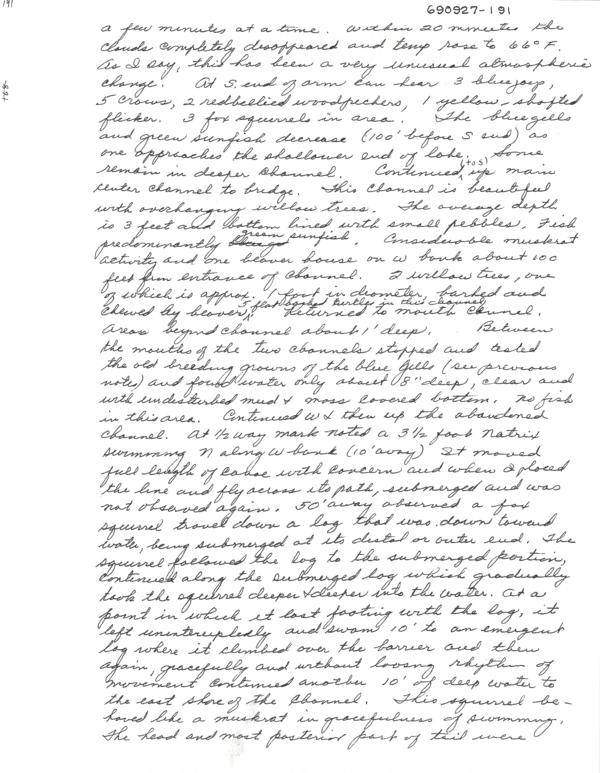 191
690927-191
a few minutes at a time. Within 20 minutes the
clouds completely disappeared and temp rose to 66° F.
As I say, this has been a very unusual atmospheric
change. At S. end of arm can hear 3 bluejays,
5 crows, 2 redbellied woodpeckers, 1 yellow-shafted
flicker. 3 fox squirrels in area. The bluegills
and green sunfish decrease (100' before S end) as
one approaches the shallower end of lake. Some
remain in deeper channel. Continued (to S) up main
center channel to bridge. This channel is beautiful
with overhanging willow trees. The average depth
is 3 feet and bottom lined with small pebbles. Fish
predominantly green sunfish. Considerable muskrat
activity and one beaver house on W bank about 100
feet from entrance of channel. 2 willow trees, one
of which is approx. 1 foot in diameter, barked and
chewed by beaver. 5 flat backed turtles in this channel
Returned to mouth channel.
Areas beyond channel about 1' deep. Between
the mouths of the two channels stopped and tested
the old breeding growns of the blue gills (see previous
notes) and found water only about 8" deep, clear and
with undisturbed mud & moss covered bottom. No fish
in this area. Continued W & then up the abandoned
channel. At 1/2 way mark noted a 3 1/2 foot Natrix
swimming N along W bank (10' away) It moved
full length of canoe with concern and when I placed
the line and fly across its path, submerged and was
not observed again. 50' away observed a fox
squirrel travel down a log that was down toward
water, being submerged at its distal or outer end. The
squirrel followed the log to the submerged portion,
continued along the submerged log which gradually
took the squirrel deeper & deeper into the water. At a
point in which it lost footing with the log, it
left uninterruptedly and swam 10' to an emergent
log where it climbed over the barrier and then
again, gracefully and without losing rhythm of
movement continued another 10' of deep water to
the east shore of the channel. This squirrel be-
haved like a muskrat in gracefulness of swimming.
The head and most posterior part of tail were